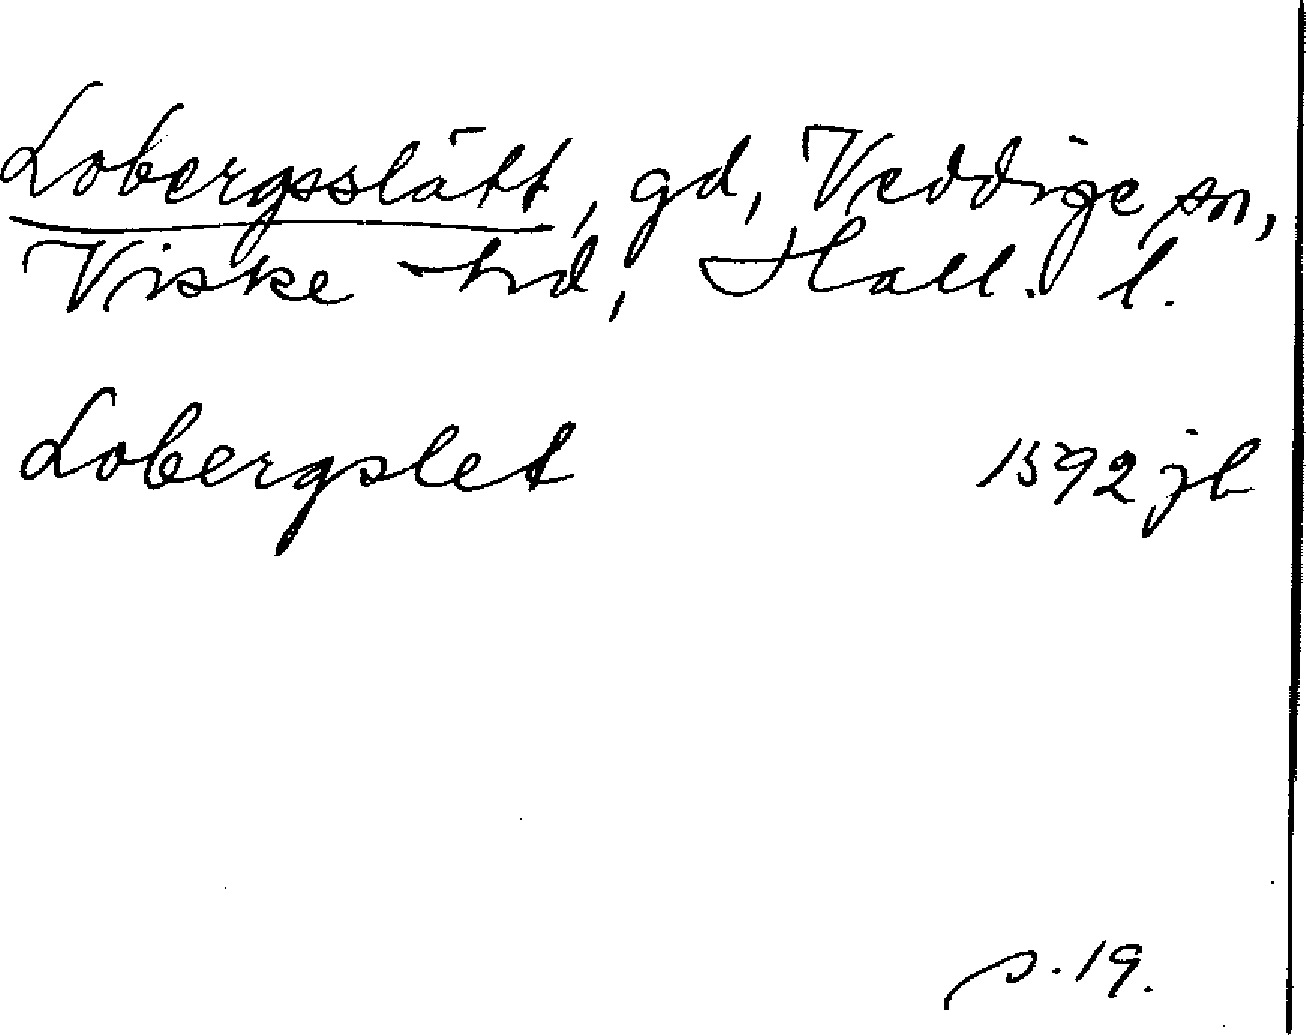 Lobergsslätt, gd, Veddige sn,
Viske hd, Hall. l.
Lobergslet 1592 jb
s. 19.